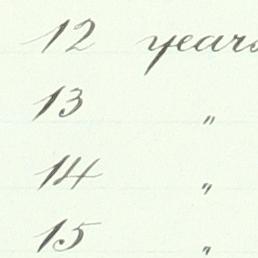 12 years
13 "
14 "
15 "